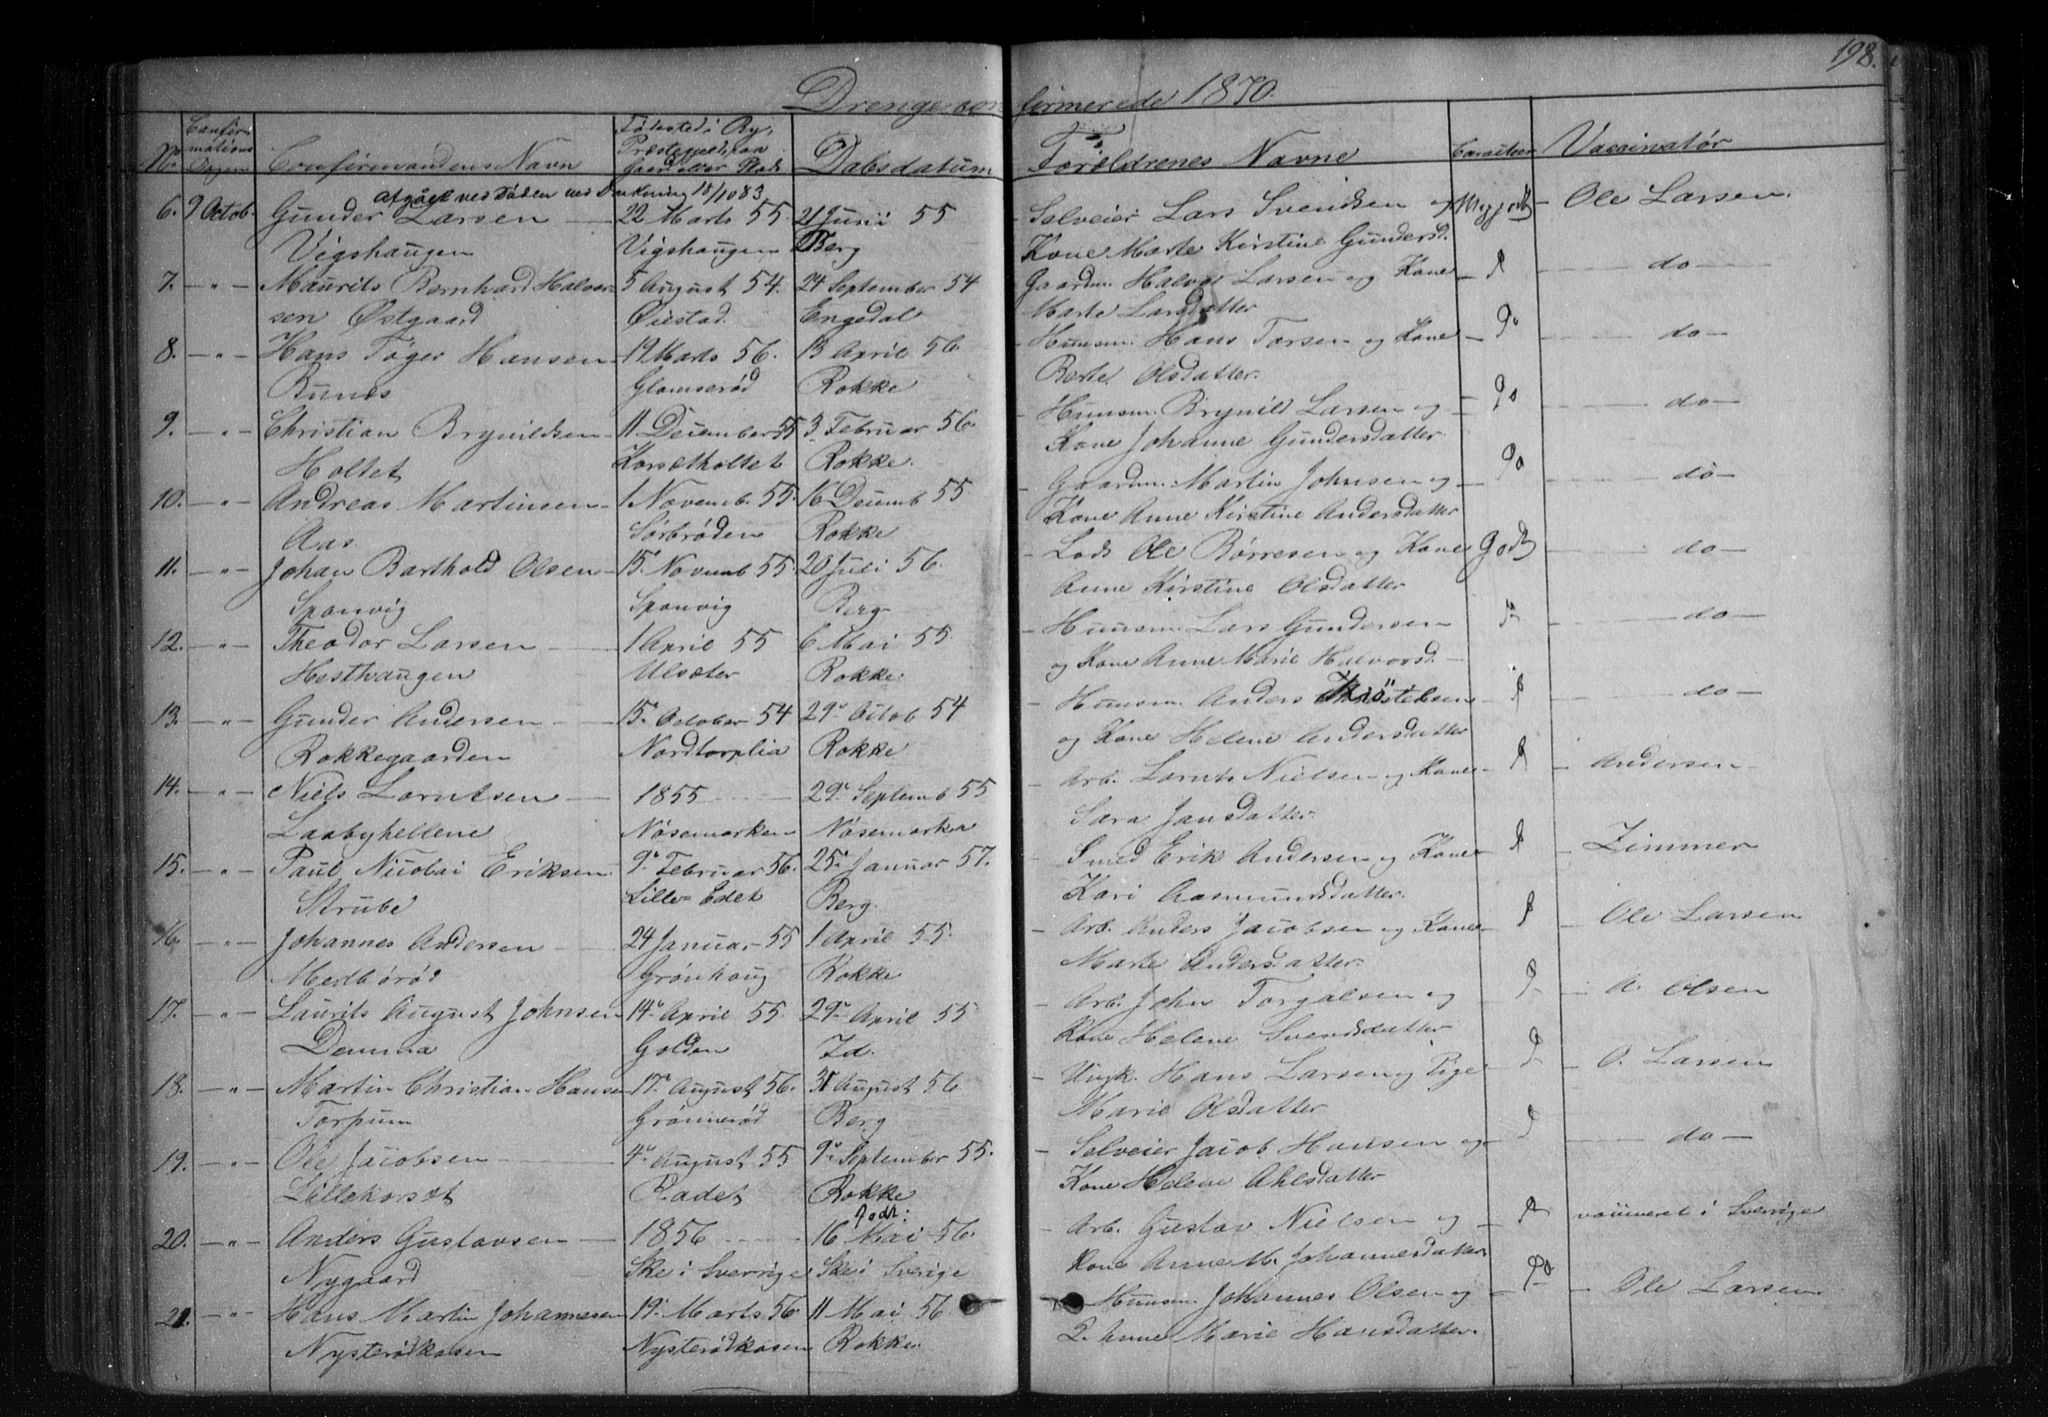 198.
Drenge con firmerede 1870.
No Confirmations Dagen Confirmandens Navn Fødested i By, Præstegjeld, paa Gaard eller Plads Daabsdatum Forældrenes Navne Caracteer Vaccinatør
afgaaet ved Døden ved Drukning 18/10 83
6. 9 Octob. Gunder Larsen 22 Marts 55. 21 Junii 55 Selveier Lars Svendsen og Meg. godt Ole Larsen.
Vigshaugen Vigshaugen Berg Kone Marte Kirstine Gundersd.
7. - " - Maurits Bernhard Halvor- 5 August 54. 24 September 54 Gaardm. Halvor Larsen og Kone do
sen Østgaard Øiestad. Engedal Marte Larsdatter
8. - " - Hans Töger Hansen 19 Marts 56. 13 April 56 Huusm. Hans Torsen og Kone do
Bunes Glomserød Rokke Berte Olsdatter.
9. - " - Christian Brynildsen 11 December 55 3 Februar 56. Huusm. Brynild Larsen og do
Holtet Korsetholtet Rokke. Kone Johanne Gundersdatter
10. - " - Andreas Martinsen 1 Novemb. 55. 16 Decemb 55. Gaardm. Martin Johnsen og do
Aas Sørbrøden Rokke Kone Anne Kirstine Andersdatter
11. - " - Johan Barthold Olsen 15 Novemb 55. 20 Juli 56. Lods Ole Børresen og Kone Godt do
Sponvig Sponvig Berg Anne Kirstine Olsdatter
12. - " - Theodor Larsen 1 April 55 6 Mai 55. Huusm. Lars Gundersen do
Hesthaugen Ulsæter Rokke og Kone Anne Marie Halvorsd.
13. - " - Gunder Andersen 15 October 54 29 Octob 54 Huusm. Anders Thröstelsen do
Rokkegaarden Nordtorplia Rokke og Kone Helene Andersdatter
14. - " - Niels Lorntsen 1855 29 Septemb 55 Arb. Lornts Nielsen og Kone Andersen
Laabyhellene Nösemarken Nösemarken Sara Jansdatter
15. - " - Paul Nicolai Eriksen 9 Februar 56. 25 Januar 57. Smed Erik Andersen og Kone Zimmer
Strube Lille-Edet Berg. Kari Aasmundsdatter.
16. - " - Johannes Andersen 24 Januar 55 1 April 55. Arb. Anders Jacobsen og Kone Ole Larsen
Medbörød Grönhaug Rokke Marte Andersdatter
17. - " - Laurits August Johnsen 14 April 55. 29 April 55 Arb. John Torgalsen og A. Olsen
Demma Golden Id. Kone Helene Svendsdatter
18. - " - Martin Christian Hansen 17 August 56. 31 August 56 Ungk. Hans Larsen og Pige O. Larsen
Torpum Grönnerød Berg Marie Olsdatter
19. - " - Ole Jacobsen 4 August 55 9 September 55. Selveier Jacob Hansen og do
Lillekorsæt Radet Rokke Kone Helene Ahlsdatter
20. - " - Anders Gustavsen 1856 født: 16 Mai 56. Arb. Gustav Nielsen og vaccineret i Sverige
Nygaard Ske i Sverrige Ske i Sverige Kone Anne M. Johannesdatter
21. - " - Hans Martin Johannesen 19 Marts 56 11 Mai 56. Huusm. Johannes Olsen og Ole Larsen
Nysterødkasen Nysterødkasen Rokke. Anne Marie Hansdatter.